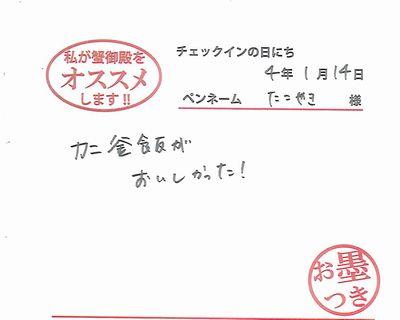 私が蟹御殿を
オススメ
します!!
チェックインの日にち
4年1月14日
ペンネーム たこやき 様
カニ釜飯が
おいしかった!
お墨
つき